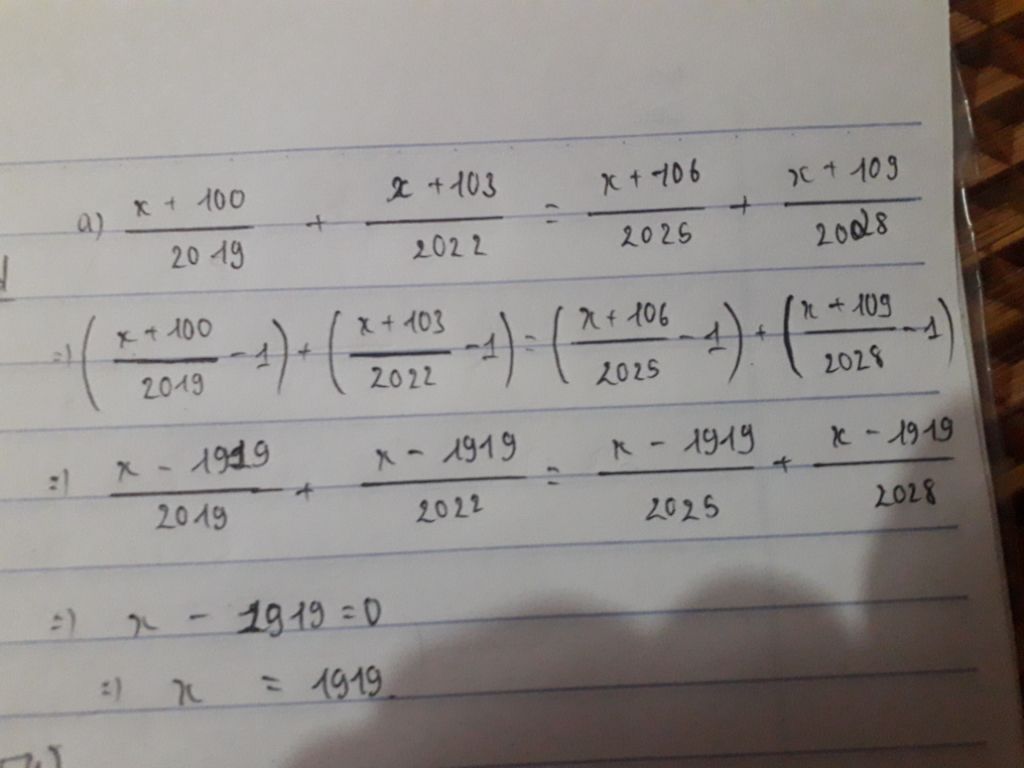 a) (x + 100)/2019 + (x + 103)/2022 = (x + 106)/2025 + (x + 109)/2028
=) ((x + 100)/2019 - 1) + ((x + 103)/2022 - 1) = ((x + 106)/2025 - 1) + ((x + 109)/2028 - 1)
=) (x - 1919)/2019 + (x - 1919)/2022 = (x - 1919)/2025 + (x - 1919)/2028
=) x - 1919 = 0
=) x = 1919